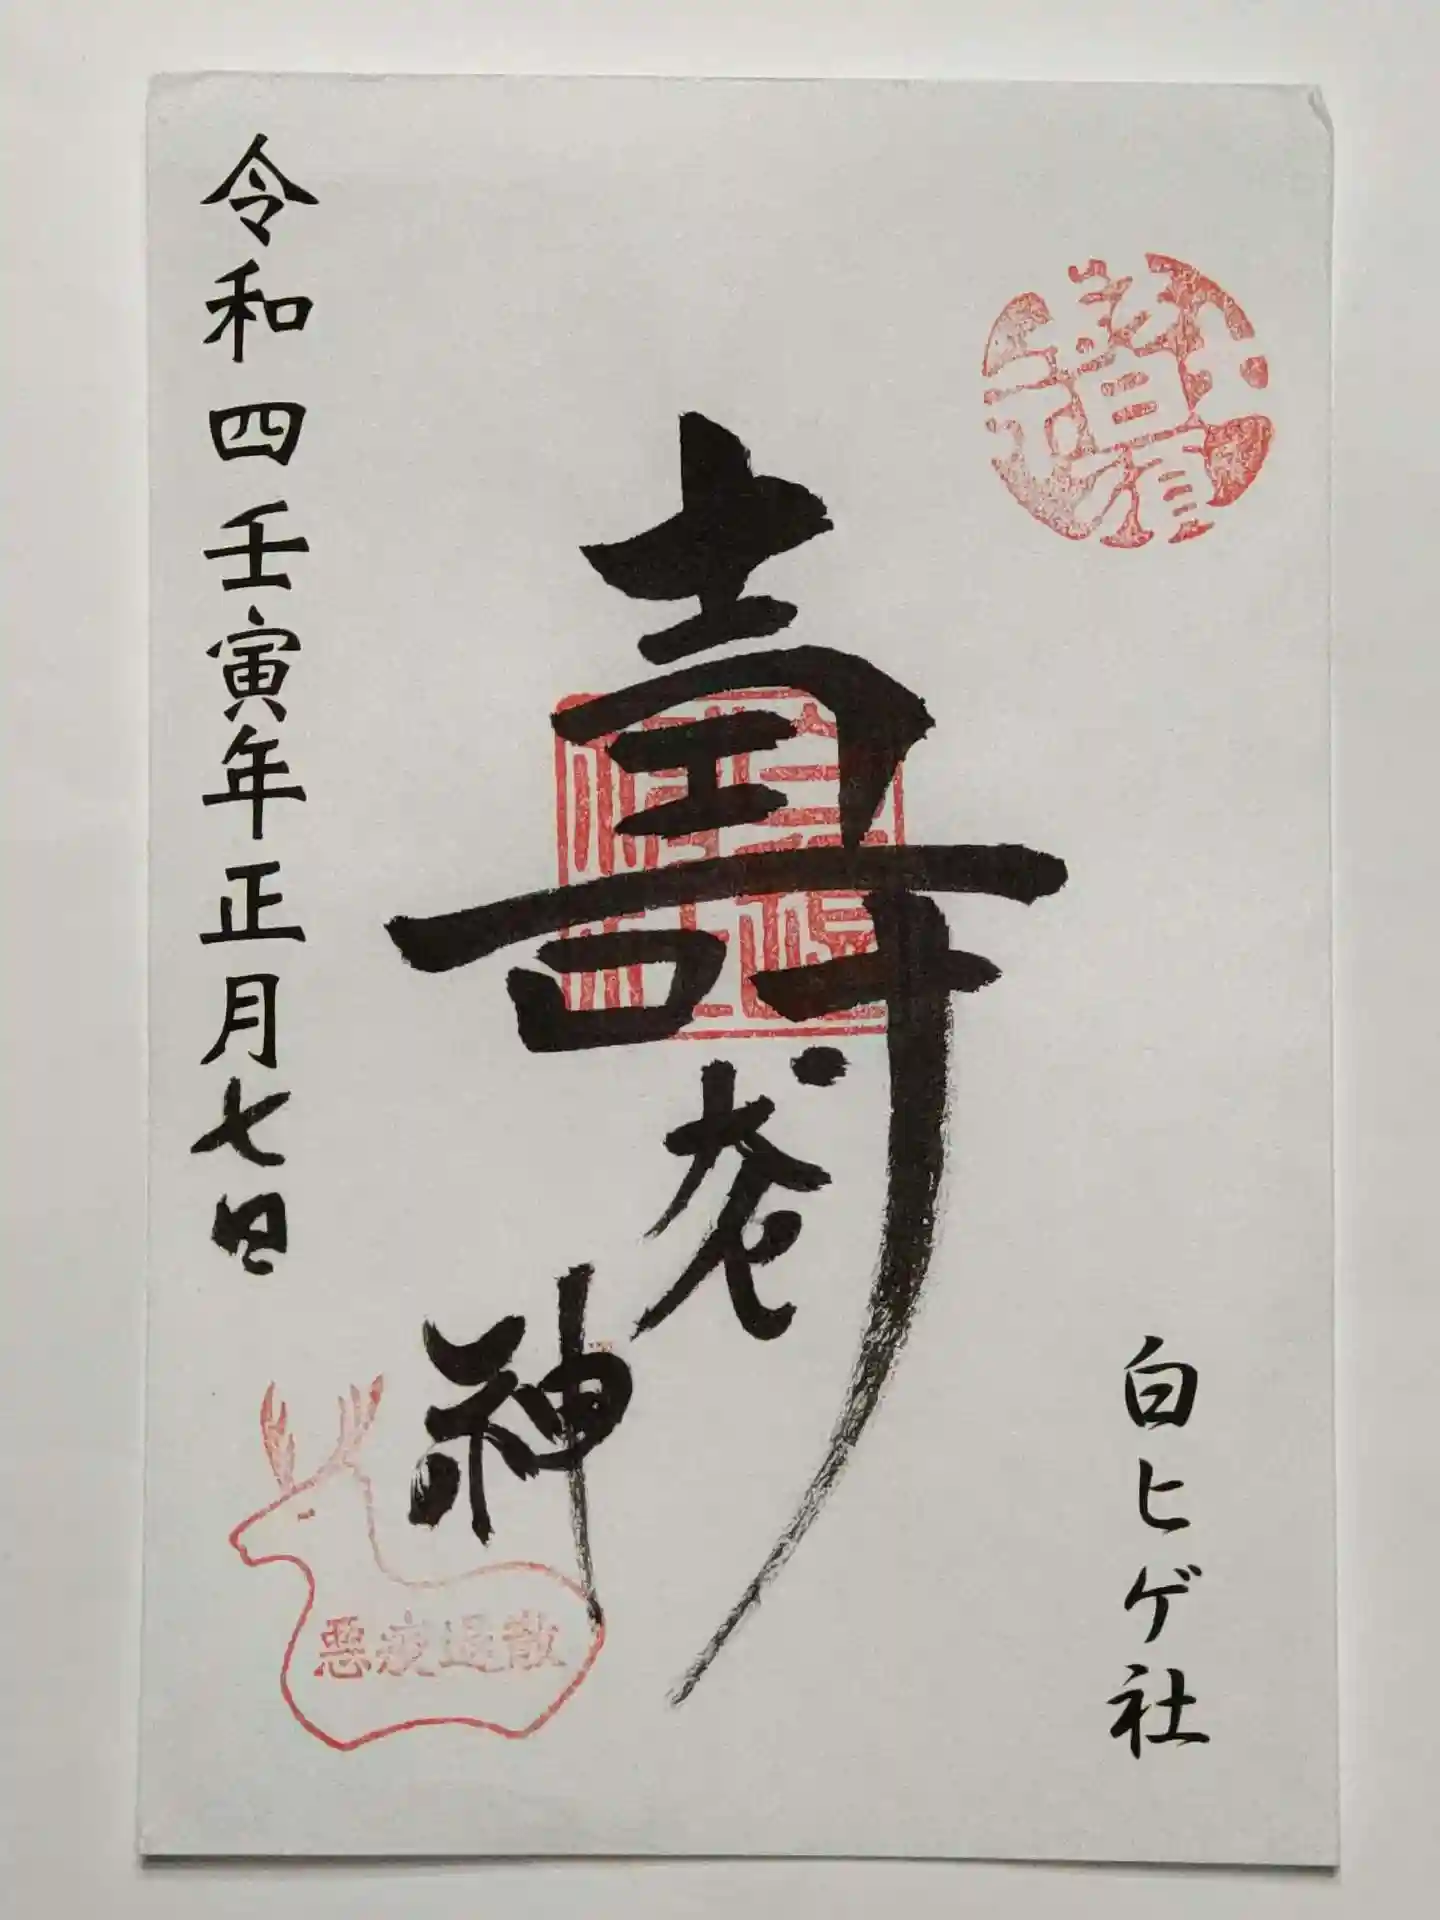 白ヒゲ社
壽老神
令和四壬寅年正月七日
悪疫退散